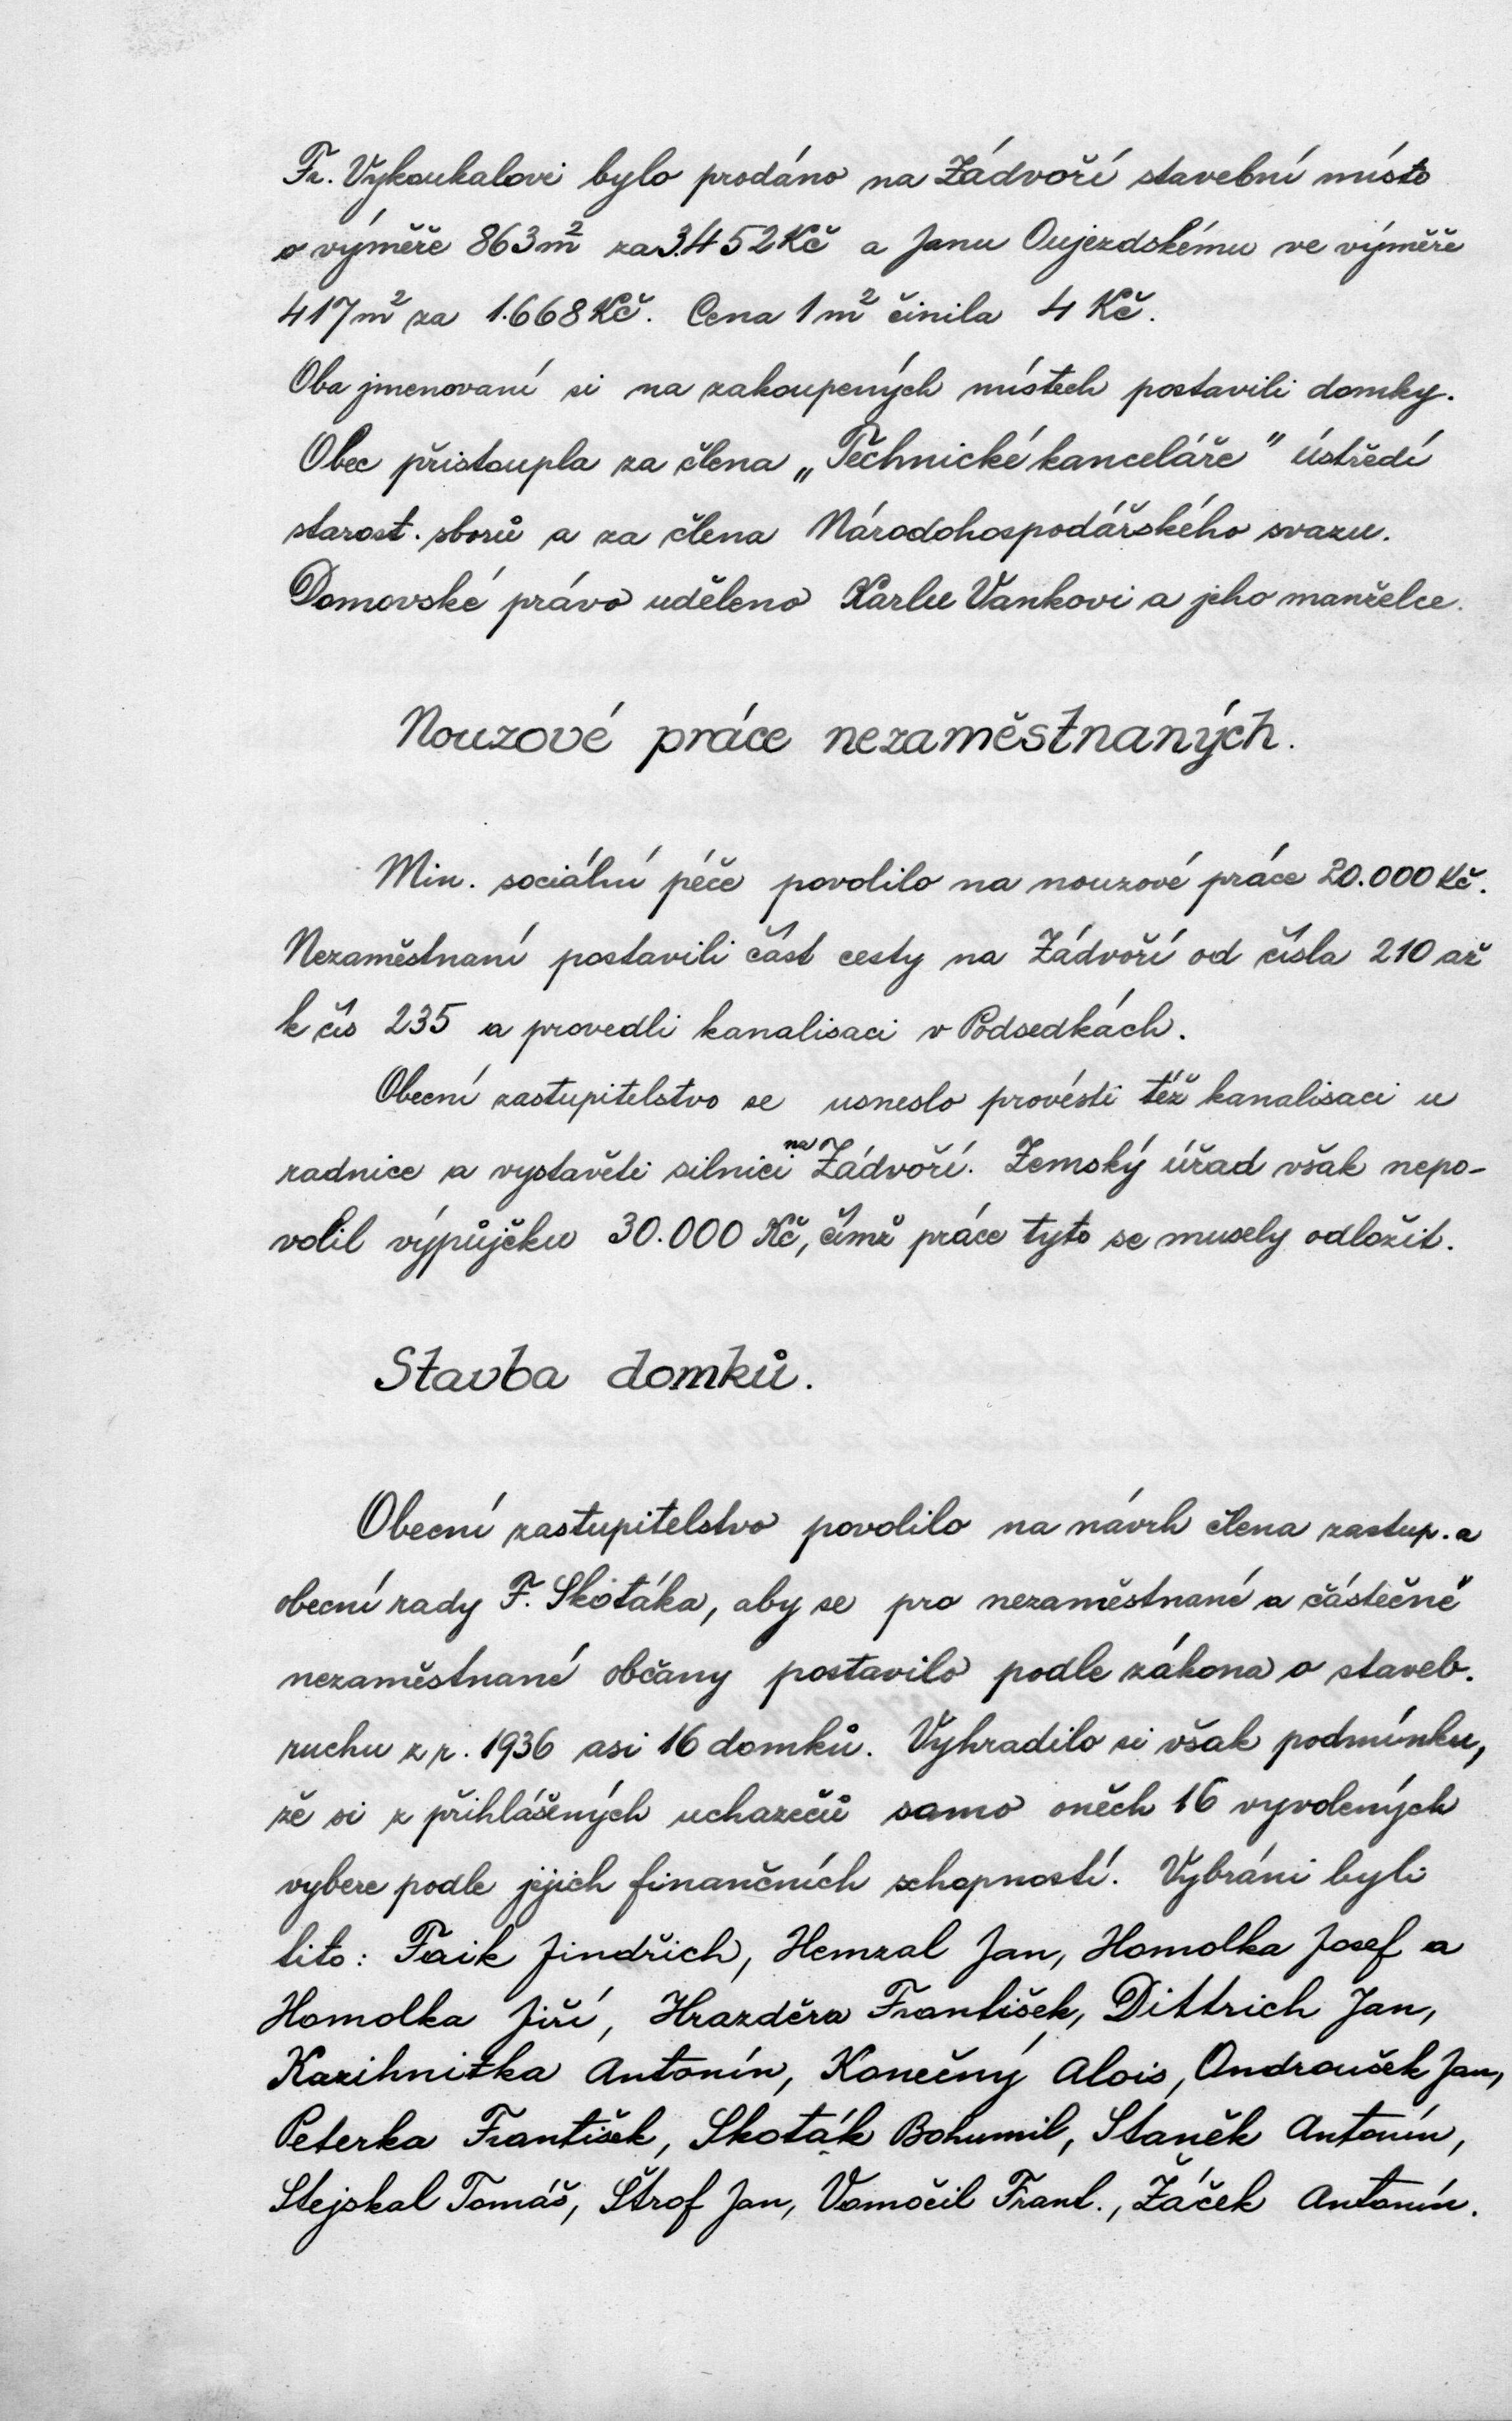 Fr. Vykoukalovi bylo prodáno na Zádvoří stavební místo
o výměře 863 m² za 3.452 Kč a Janu Oujezdskému ve výměře
417 m² za 1.668 Kč. Cena 1 m² činila 4 Kč.
Oba jmenovaní si na zakoupených místech postavili domky.
Obec přistoupla za člena „Technické kanceláře" ústředí
starost. sborů a za člena Národohospodářského svazu.
Domovské právo uděleno Karlu Vankovi a jeho manželce.
Nouzové práce nezaměstnaných.
Min. sociální péče povolilo na nouzové práce 20.000 Kč.
Nezaměstnaní postavili část cesty na Zádvoří od čísla 210 až
k čís 235 a provedli kanalisaci v Podsedkách.
Obecní zastupitelstvo se usneslo provésti též kanalisaci u
radnice a vystavěti silnici na Zádvoří. Zemský úřad však nepo-
volil výpůjčku 30.000 Kč, čímž práce tyto se musely odložit.
Stavba domků.
Obecní zastupitelstvo povolilo na návrh člena zastup. a
obecní rady F. Skotáka, aby se pro nezaměstnané a částečně
nezaměstnané občany postavilo podle zákona o staveb.
ruchu z r. 1936 asi 16 domků. Vyhradilo si však podmínku,
že si z přihlášených uchazečů samo oněch 16 vyvolených
vybere podle jejich finančních schopností. Vybráni byli
tito: Faik Jindřich, Hemzal Jan, Homolka Josef a
Homolka Jiří, Hrazděra František, Dittrich Jan,
Karihnižka Antonín, Konečný Alois, Ondroušek Jan,
Peterka František, Skoták Bohumil, Staněk Antonín,
Stejskal Tomáš, Štrof Jan, Vomočil Frant., Žáček Antonín.